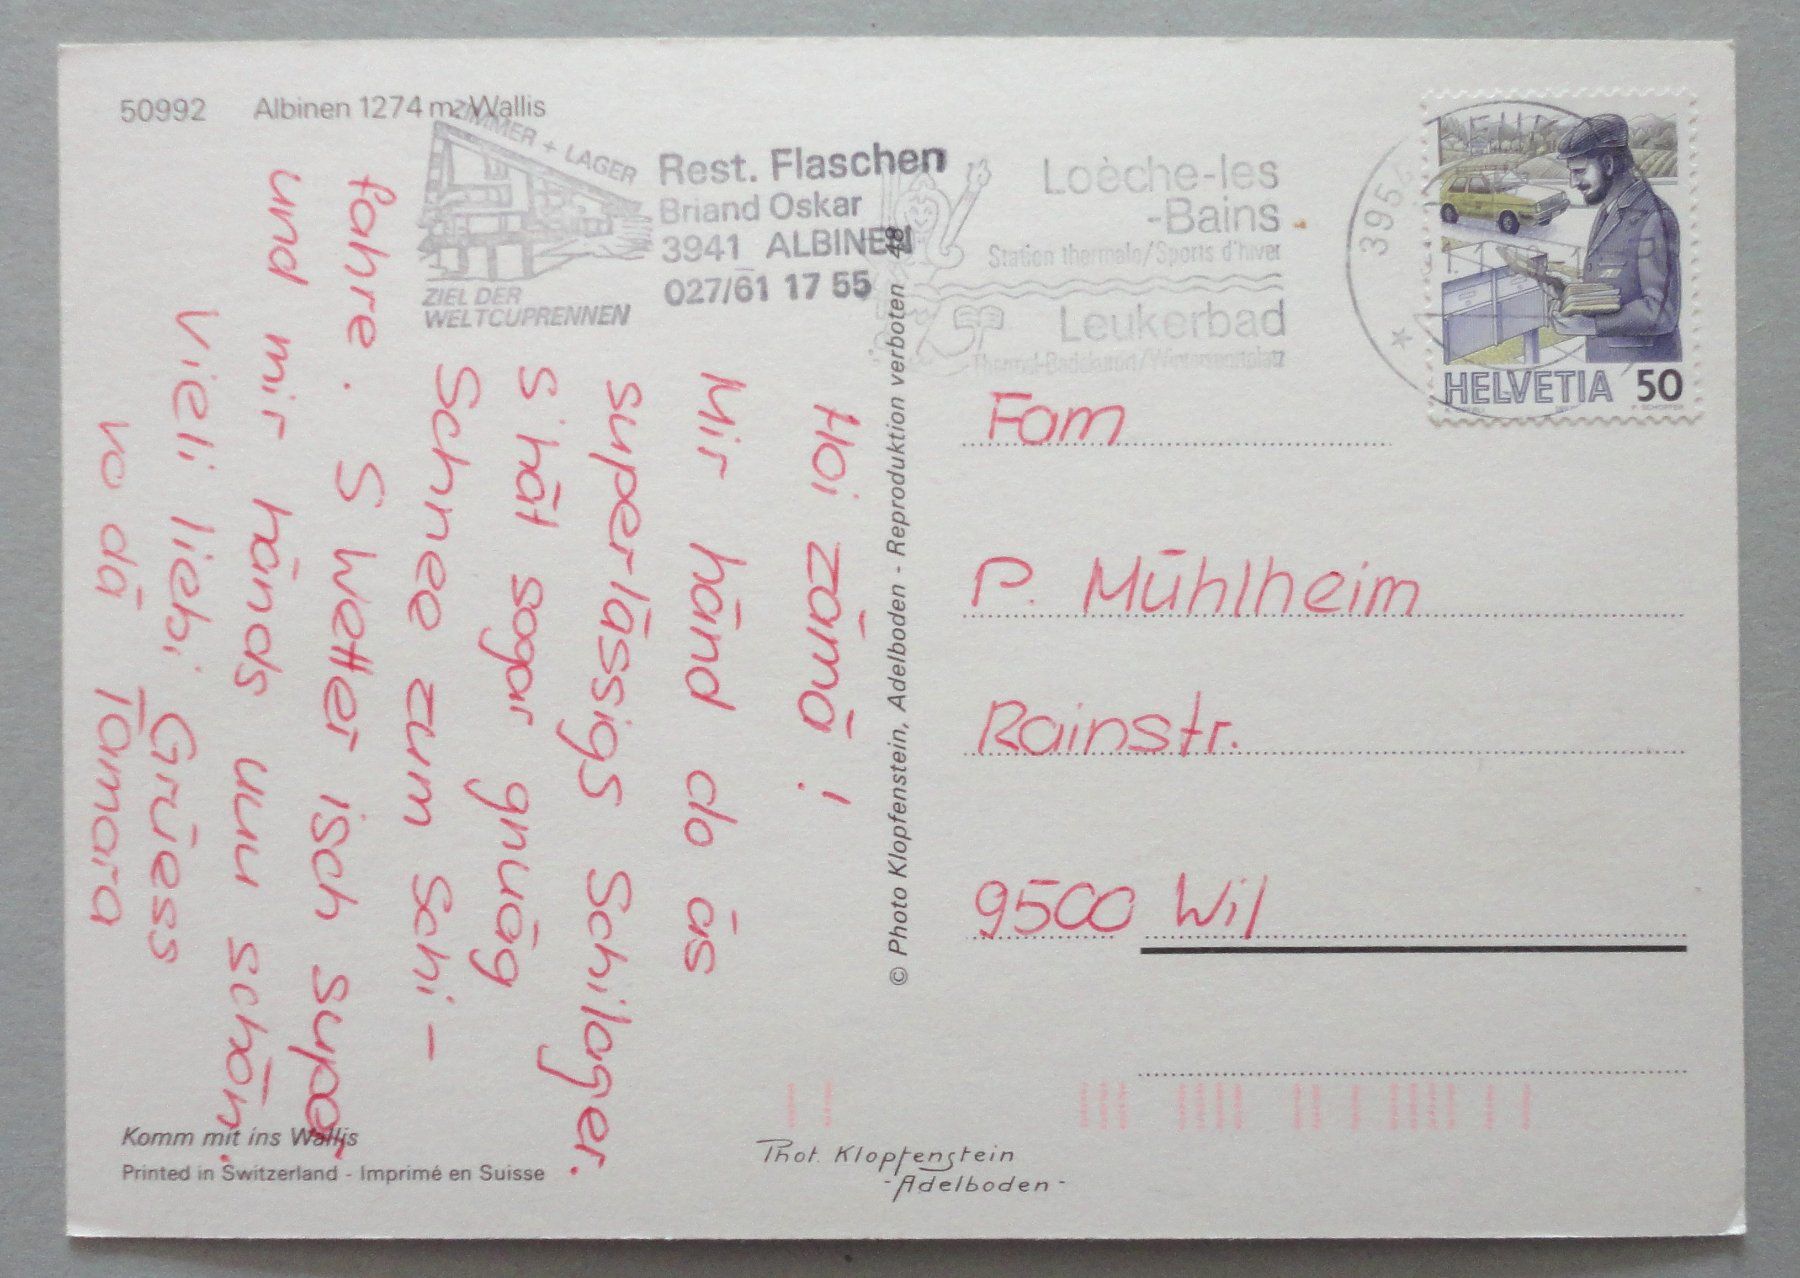 50992 Albinen 1274 m, Wallis
ZIMMER + LAGER
ZIEL DER
WELTCUPRENNEN
Rest. Flaschen
Briand Oskar
3941 ALBINEN
027/61 17 55
Loèche-les
-Bains
Station thermale/Sports d'hiver
Leukerbad
Thermal-Badekurort/Wintersportplatz
3954
HELVETIA 50
Hoi zämä!
Mir händ do äs
superlässigs Schilager.
S'hät sogar gnuäg
Schnee zum Schi-
fahre. S Wetter isch super
und mir händs uuu schön.
Vieli liebi Grüess
vo dä Tamara
© Photo Klopfenstein, Adelboden - Reproduktion verboten 48
Fam
P. Mühlheim
Rainstr.
9500 Wil
Komm mit ins Wallis
Printed in Switzerland - Imprimé en Suisse
Phot. Klopfenstein
- Adelboden -